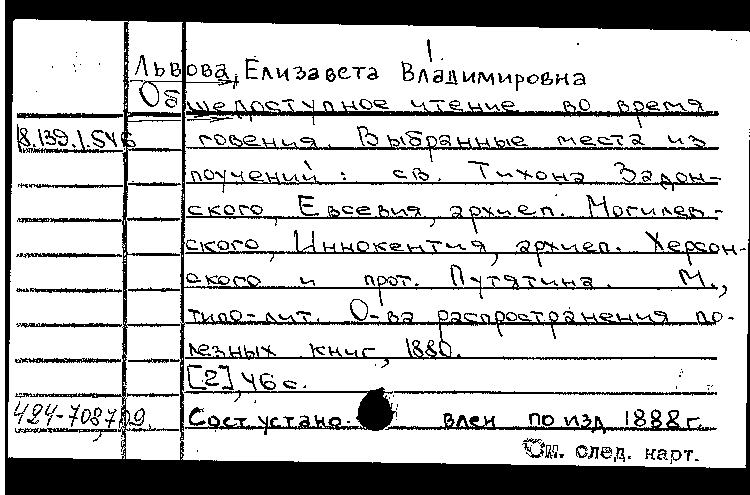 1.
Львова, Елизавета Владимировна
Общедоступное чтение во время
18.139.1.546 говения. Выбранные места из
поучений: св. Тихона Задон-
ского, Евсевия, архиеп. Могилев-
ского, Иннокентия, архиеп. Херсон-
ского и прот. Путятина. М.,
типо-лит. О-ва распространения по-
лезных книг, 1880.
[2], 46 с.
424-708,709. Сост. устано- влен по изд 1888 г.
См. след. карт.